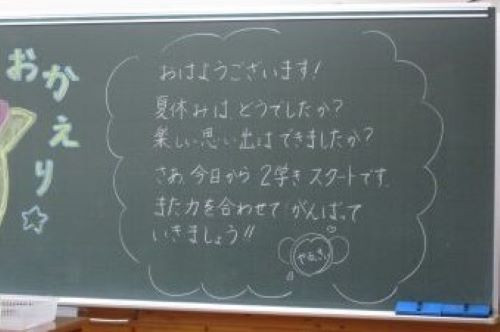 おかえり☆
おはようございます!
夏休みは どうでしたか?
楽しい思い出は できましたか?
さあ、今日から 2学き スタートです。
また力を合わせて がんばって
いきましょう!!